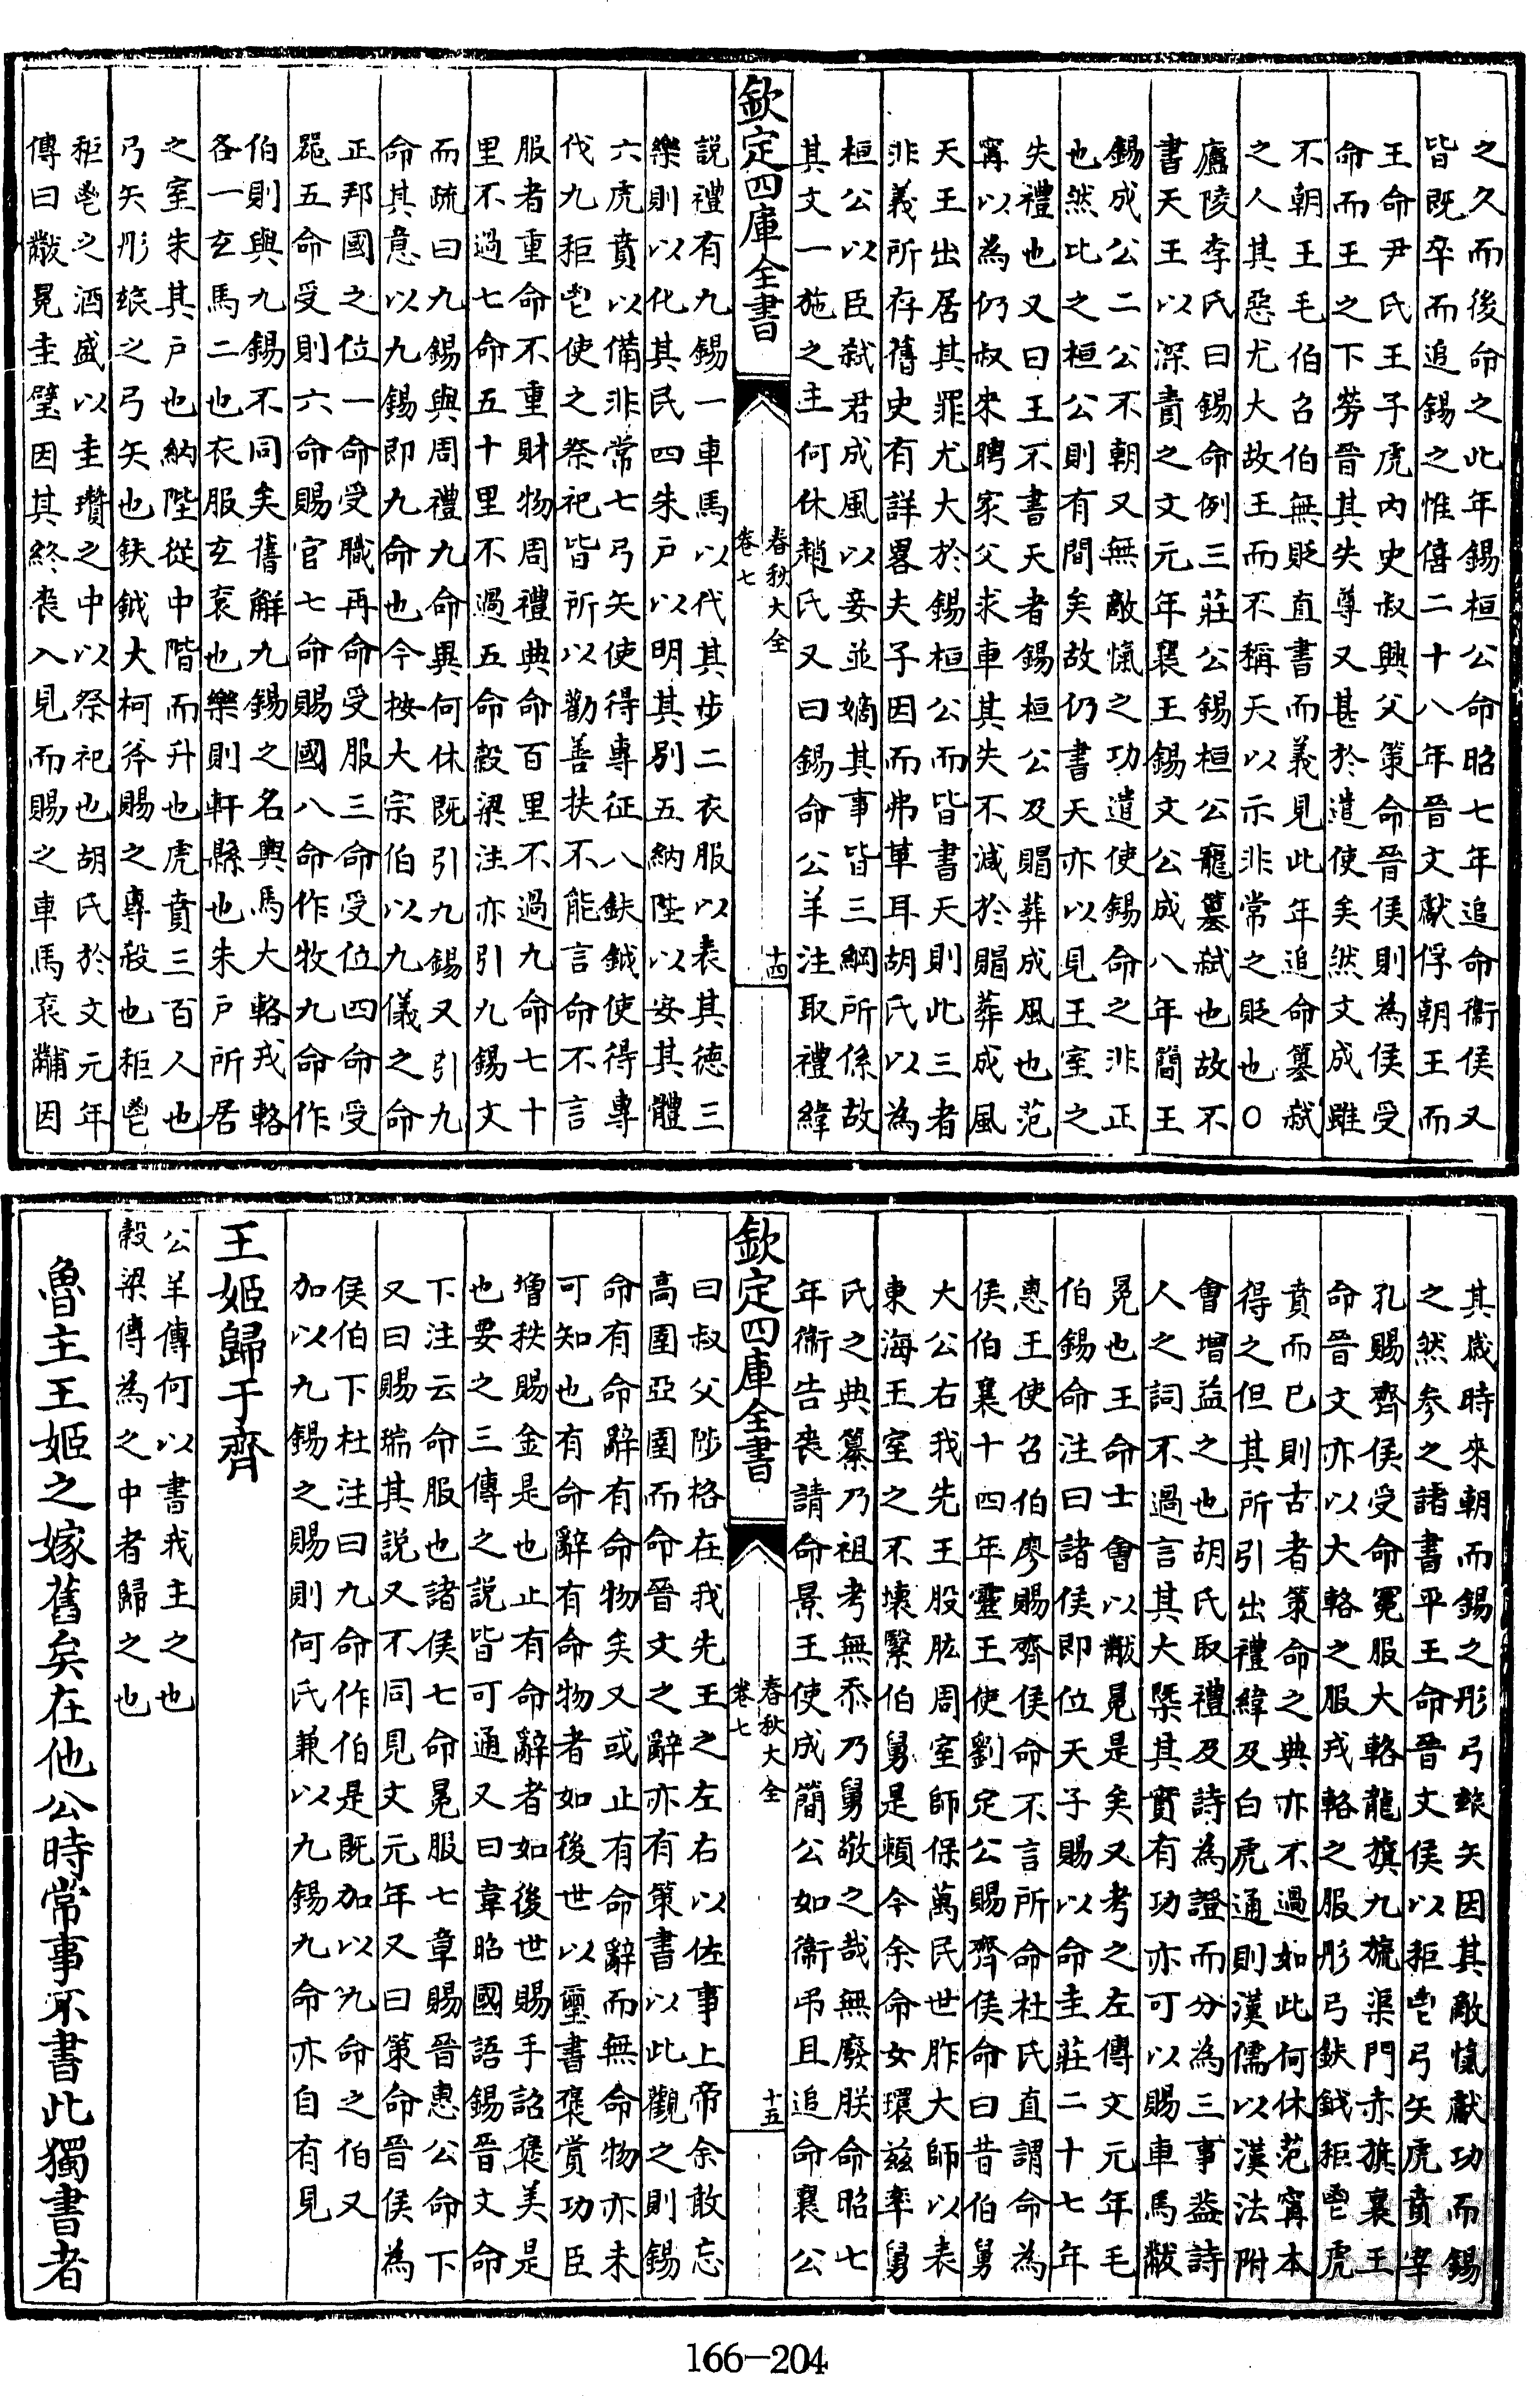 之久而後命之此年錫桓公命昭七年追命衞侯又
皆既卒而追錫之惟僖二十八年晉文獻俘朝王而
王命尹氏王子虎内史叔興父策命晉侯則為侯受
命而王之下勞晉其失尊又甚於遣使矣然文成雖
不朝王毛伯召伯無貶直書而義見此年追命簒弑
之人其惡尤大故王而不稱天以示非常之貶也○
廬陵李氏曰錫命例三莊公錫桓公寵簒弑也故不
書天王以深責之文元年襄王錫文公成八年簡王
錫成公二公不朝又無敵愾之功遣使錫命之非正
也然比之桓公則有間矣故仍書天亦以見王室之
失禮也又曰王不書天者錫桓公及賵葬成風也范
甯以為仍叔來聘家父求車其失不減於賵葬成風
天王出居其罪尤大於錫桓公而皆書天則此三者
非義所存舊史有詳畧夫子因而弗革耳胡氏以為
桓公以臣弑君成風以妾並嫡其事皆三綱所係故
其文一施之主何休趙氏又曰錫命公羊注取禮緯
欽定四庫全書
春秋大全
卷七
十四
說禮有九錫一車馬以代其步二衣服以表其德三
樂則以化其民四朱戶以明其别五納陛以安其體
六虎賁以備非常七弓矢使得專征八鈇鉞使得專
伐九秬鬯使之祭祀皆所以勸善扶不能言命不言
服者重命不重財物周禮典命百里不過九命七十
里不過七命五十里不過五命穀梁注亦引九錫文
而疏曰九錫與周禮九命異何休既引九錫又引九
命其意以九錫即九命也今按大宗伯以九儀之命
正邦國之位一命受職再命受服三命受位四命受
器五命受則六命賜官七命賜國八命作牧九命作
伯則與九錫不同矣舊解九錫之名輿馬大輅戎輅
各一玄馬二也衣服玄衮也樂則軒縣也朱戶所居
之室朱其戶也納陛從中階而升也虎賁三百人也
弓矢彤玈之弓矢也鈇鉞大柯斧賜之專殺也秬鬯
秬鬯之酒盛以圭瓚之中以祭祀也胡氏於文元年
傳曰黻冕圭璧因其終喪入見而賜之車馬衮黼因
其歲時來朝而錫之彤弓玈矢因其敵愾獻功而錫
之然参之諸書平王命晉文侯以秬鬯弓矢虎賁宰
孔賜齊侯受命冕服大輅龍旗九旒渠門赤旗襄王
命晉文亦以大輅之服戎輅之服彤弓鈇鉞秬鬯虎
賁而已則古者策命之典亦不過如此何休范甯本
得之但其所引出禮緯及白虎通則漢儒以漢法附
會增益之也胡氏取禮及詩為證而分為三事盖詩
人之詞不過言其大槩其實有功亦可以賜車馬黻
冕也王命士會以黻冕是矣又考之左傳文元年毛
伯錫命注曰諸侯即位天子賜以命圭莊二十七年
惠王使召伯廖賜齊侯命不言所命杜氏直謂命為
侯伯襄十四年靈王使劉定公賜齊侯命曰昔伯舅
大公右我先王股肱周室師保萬民世胙大師以表
東海王室之不壊繄伯舅是賴今余命女環兹率舅
氏之典纂乃祖考無忝乃舅敬之哉無廢朕命昭七
年衞告喪請命景王使成簡公如衞弔且追命襄公
欽定四庫全書
春秋大全
卷七
十五
曰叔父陟恪在我先王之左右以佐事上帝余敢忘
高圉亞圉而命晉文之辭亦有策書以此觀之則錫
命有命辭有命物矣又或止有命辭而無命物亦未
可知也有命辭有命物者如後世以璽書褒賞功臣
增秩賜金是也止有命辭者如後世賜手詔褒美是
也要之三傳之說皆可通又曰韋昭國語錫晉文命
下注云命服也諸侯七命冕服七章賜晉惠公命下
又曰賜瑞其說又不同見文元年又曰策命晉侯為
侯伯下杜注曰九命作伯是既加以九命之伯又
加以九錫之賜則何氏兼以九錫九命亦自有見
王姬歸于齊
公羊傳何以書我主之也
穀梁傳為之中者歸之也
魯主王姬之嫁舊矣在他公時常事不書此獨書者
166-204